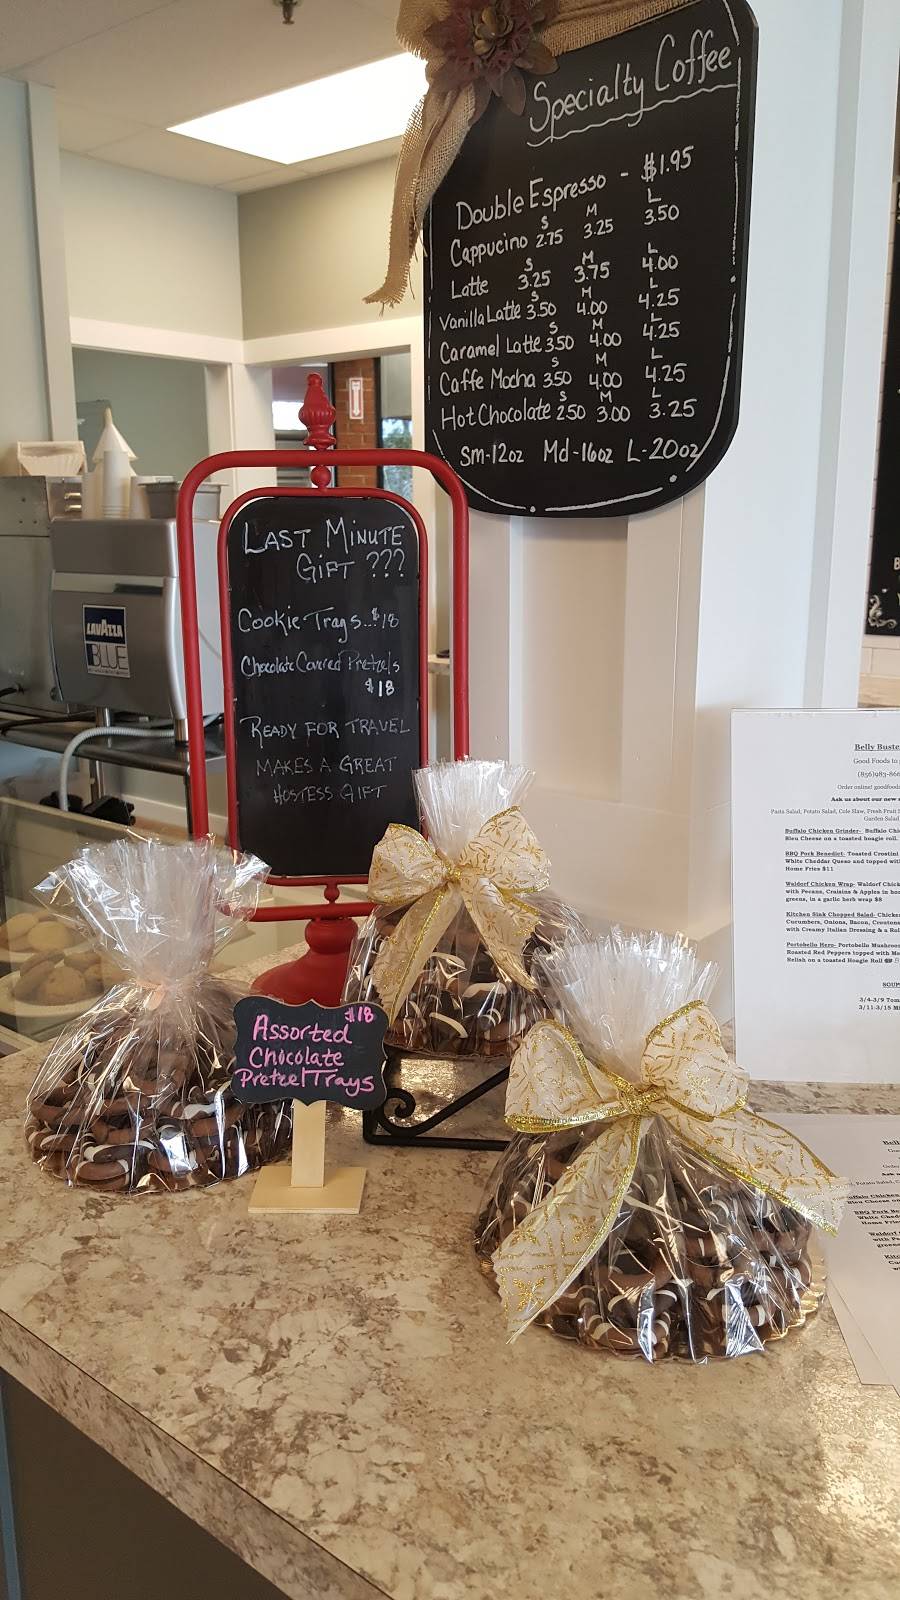 Specialty Coffee
Double Espresso - $1.95
S M L
Cappucino 2.75 3.25 3.50
S M L
Latte 3.25 3.75 4.00
S M L
Vanilla Latte 3.50 4.00 4.25
S M L
Caramel Latte 3.50 4.00 4.25
S M L
Caffe Mocha 3.50 4.00 4.25
S M L
Hot Chocolate 2.50 3.00 3.25
Sm-12oz Md-16oz L-20oz
LAST MINUTE
GIFT ???
Cookie Trays...$18
Chocolate Covered Pretzels
$18
READY FOR TRAVEL
MAKES A GREAT
HOSTESS GIFT
LAVAZZA
BLUE
$18
Assorted
Chocolate
Pretzel Trays
Belly Buste
Good Foods to
(856)983-866
Order online! goodfoods
Ask us about our new
Pasta Salad, Potato Salad, Cole Slaw, Fresh Fruit
Garden Salad
Buffalo Chicken Grinder- Buffalo Chic
Bleu Cheese on a toasted hoagie roll.
BBQ Pork Benedict- Toasted Crostini
White Cheddar Queso and topped with
Home Fries $11
Waldorf Chicken Wrap- Waldorf Chick
with Pecans, Craisins & Apples in hon
greens, in a garlic herb wrap $8
Kitchen Sink Chopped Salad- Chicken
Cucumbers, Onions, Bacon, Croutons
with Creamy Italian Dressing & a Rol
Portobello Hero- Portobello Mushroo
Roasted Red Peppers topped with Mo
Relish on a toasted Hoagie Roll
SOUP
3/4-3/9 Tom
3/11-3/15 Mi